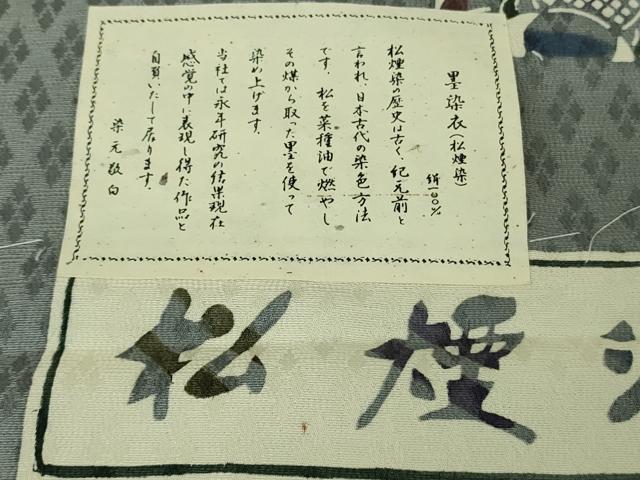 墨染衣(松煙染)
絹一〇〇%
松煙染の歴史は古く、紀元前と
言われ、日本古代の染色方法
です。松を菜種油で燃やし
その煤から取った墨を使って
染め上げます。
当社では永年研究の結果現在
感覚の中に表現し得た作品と
自負いたして居ります。
染元敬白
松煙